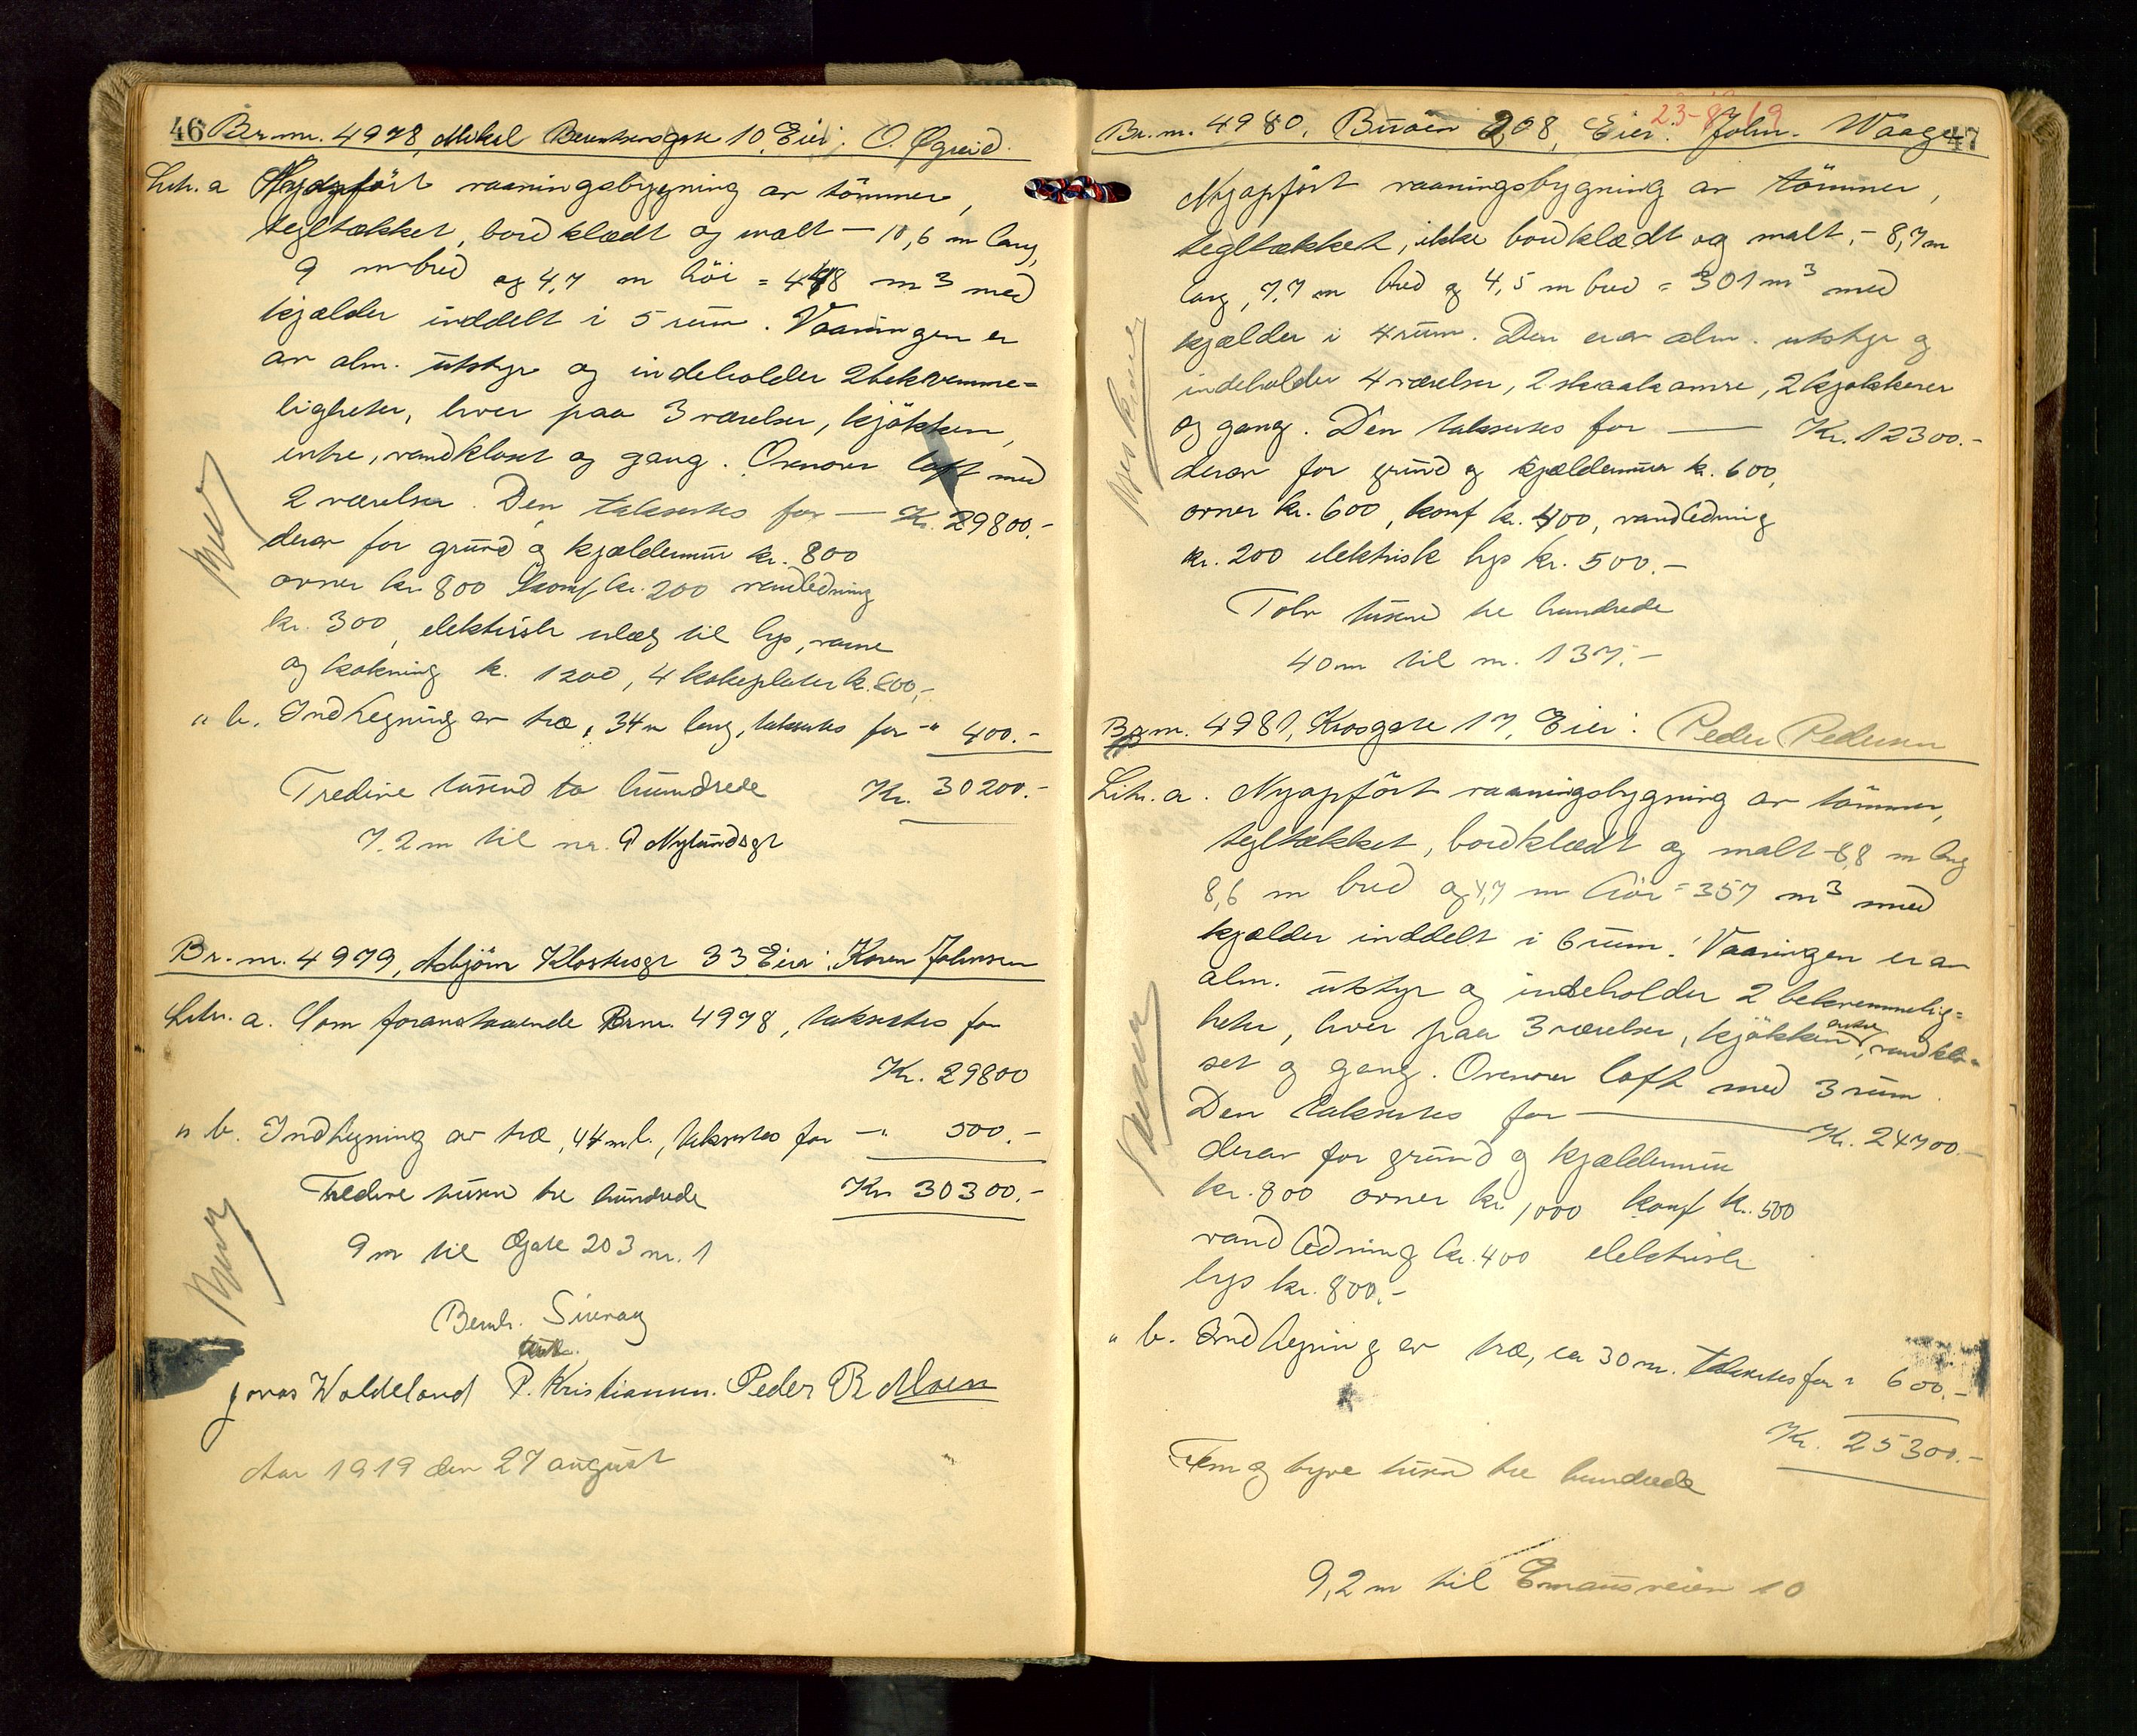 46 Br.nr. 4978, Mikal Berentsensgate 10, Eier: O. Øgreid.
Litr. a Nyopført vaaningsbygning av tömmer,
tegltækket, bordklædt og malt — 10,6 m lang,
9 m bred og 4,7 m höi = 448 m3 med
kjælder inddelt i 5 rum. Vaaningen er
av alm. utstyr og indeholder 2 bekvemme=
ligheter, hver paa 3 værelser, kjökken,
entre, vandkloset og gang. Ovenover loft med
2 værelser. Den takseres for — Kr. 29800.-
derav for grund og kjældermur kr. 800
ovner kr. 800 komf. kr. 200 vandledning
kr. 300, elektrisk til lys, varme
og kokning kr. 1200, 4 kokeplater kr. 800,-
" b. Indhegning av træ, 34 m lang, takseres for -" 400.-
Tredive tusend to hundrede Kr. 30200.-
7.2 m til nr. 9 Nylundsgt
Br.nr. 4979, Asbjörn Klostersgt 33 Eier: Karen Johnsen
Litr. a. Som foranstaaende Br.nr. 4978, takseres for
Kr. 29800
" b. Indhegning av træ, 44 m l., takseres for —" 500.-
Tredive tusen tre hundrede Kr 30300.-
9 m til Gate 203 nr. 1
Bernh.
Jonas Waldeland P. Kristiansen. Peder R Moen
Aar 1919 den 27 august
23-8-19
Br.nr. 4980, Buöen 208, Eier: John. Waage 47
Nyopfört vaaningsbygning av tömmer,
tegltækket, ikke bordklædt og malt, - 8,7 m
lang, 7,7 m bred og 4,5 m bred = 301 m3 med
kjælder i 4 rum. Den er av alm. utstyr og
indeholder 4 værelser, 2 skaakamre, 2 kjøkkener
og gang. Den takseres for — Kr. 12300.-
derav for grund og kjældermur kr. 600,
ovner kr. 600, komf kr. 400, vandledning
kr. 200 elektrisk lys kr. 500.-
Tolv tusend tre hundrede
40 m til nr. 137.-
Br.nr. 4981, Krosgate 17, Eier: Peder Pedersen
Litr. a. Nyopfört vaaningsbygning av tömmer,
tegltækket, bordklædt og malt - 8,8 m lang
8,6 m bred og 4,7 m höi = 357 m3 med
kjælder inddelt i 6 rum. Vaaningen er av
alm. utstyr og indeholder 2 bekvemmelig=
heter, hver paa 3 værelser, kjökken, entre, vandklo=
set og gang. Ovenover loft med 3 rum.
Den takseres for — Kr. 24700.-
derav for grund og kjældermur
kr. 800 ovner kr. 1000 komf kr. 500
vandledning kr. 400 elektrisk
lys kr. 800.-
" b. Indhegning av træ, ca 30 m. takseres for " 600.-
Kr. 25300.-
Fem og tyve tusen tre hundrede
9,2 m til Emausveien 10